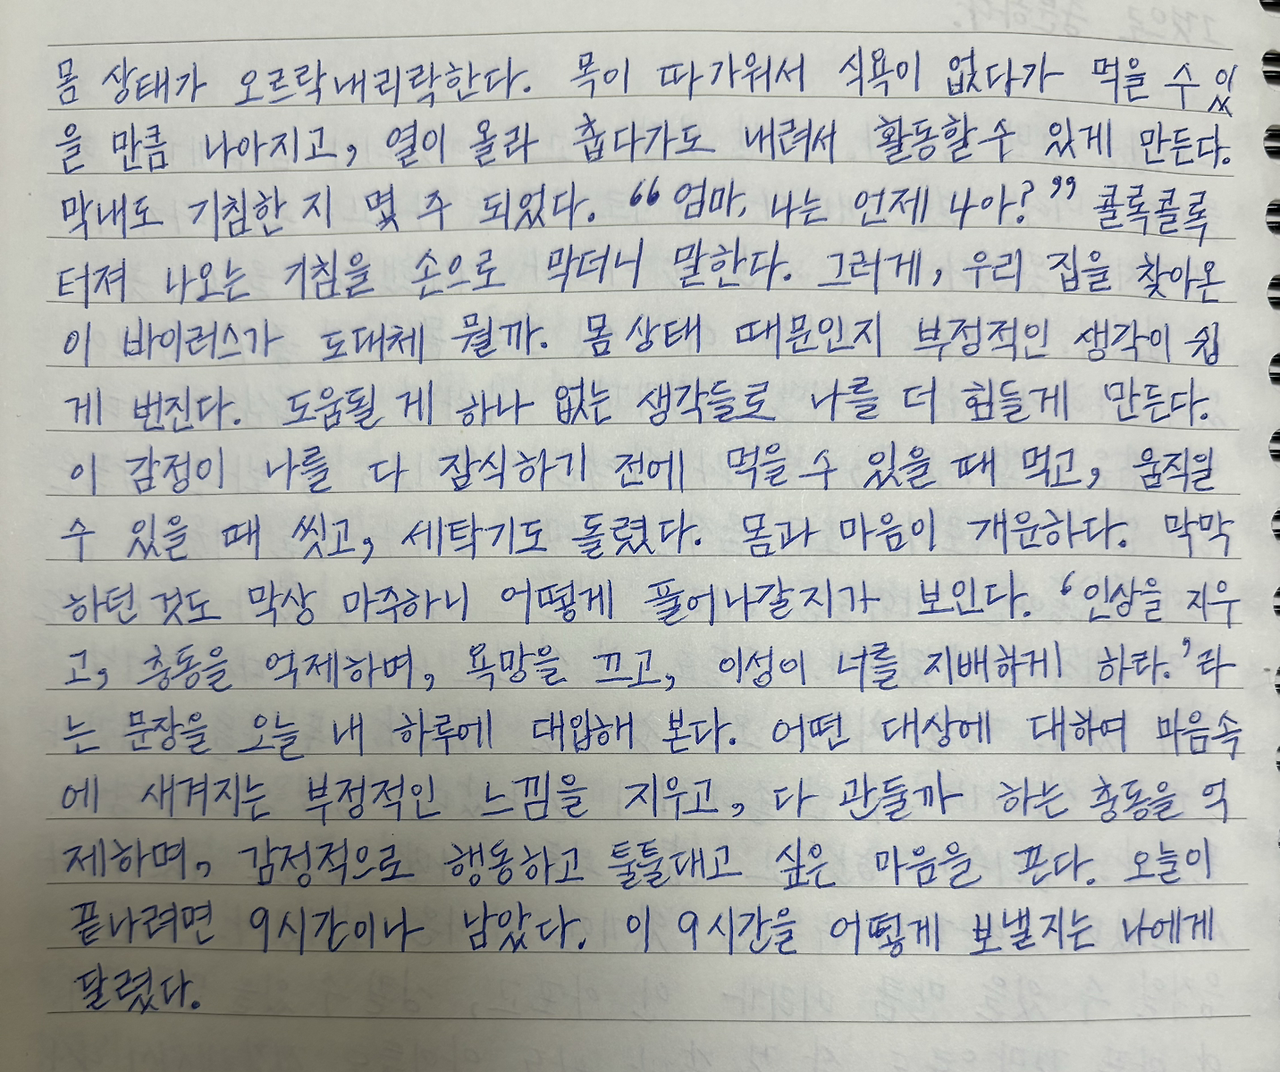 몸 상태가 오르락내리락한다. 목이 따가워서 식욕이 없다가 먹을 수 있
을 만큼 나아지고, 열이 올라 춥다가도 내려서 활동할 수 있게 만든다.
막내도 기침한 지 몇 주 되었다. “엄마, 나는 언제 나아?” 콜록콜록
터져 나오는 기침을 손으로 막더니 말한다. 그러게, 우리 집을 찾아온
이 바이러스가 도대체 뭘까. 몸 상태 때문인지 부정적인 생각이 쉽
게 번진다. 도움될 게 하나 없는 생각들로 나를 더 힘들게 만든다.
이 감정이 나를 다 잠식하기 전에 먹을 수 있을 때 먹고, 움직일
수 있을 때 씻고, 세탁기도 돌렸다. 몸과 마음이 개운하다. 막막
하던 것도 막상 마주하니 어떻게 풀어나갈지가 보인다. ‘인상을 지우
고, 충동을 억제하며, 욕망을 끄고, 이성이 너를 지배하게 하라.’라
는 문장을 오늘 내 하루에 대입해 본다. 어떤 대상에 대하여 마음속
에 새겨지는 부정적인 느낌을 지우고, 다 관둘까 하는 충동을 억
제하며, 감정적으로 행동하고 툴툴대고 싶은 마음을 끈다. 오늘이
끝나려면 9시간이나 남았다. 이 9시간을 어떻게 보낼지는 나에게
달렸다.